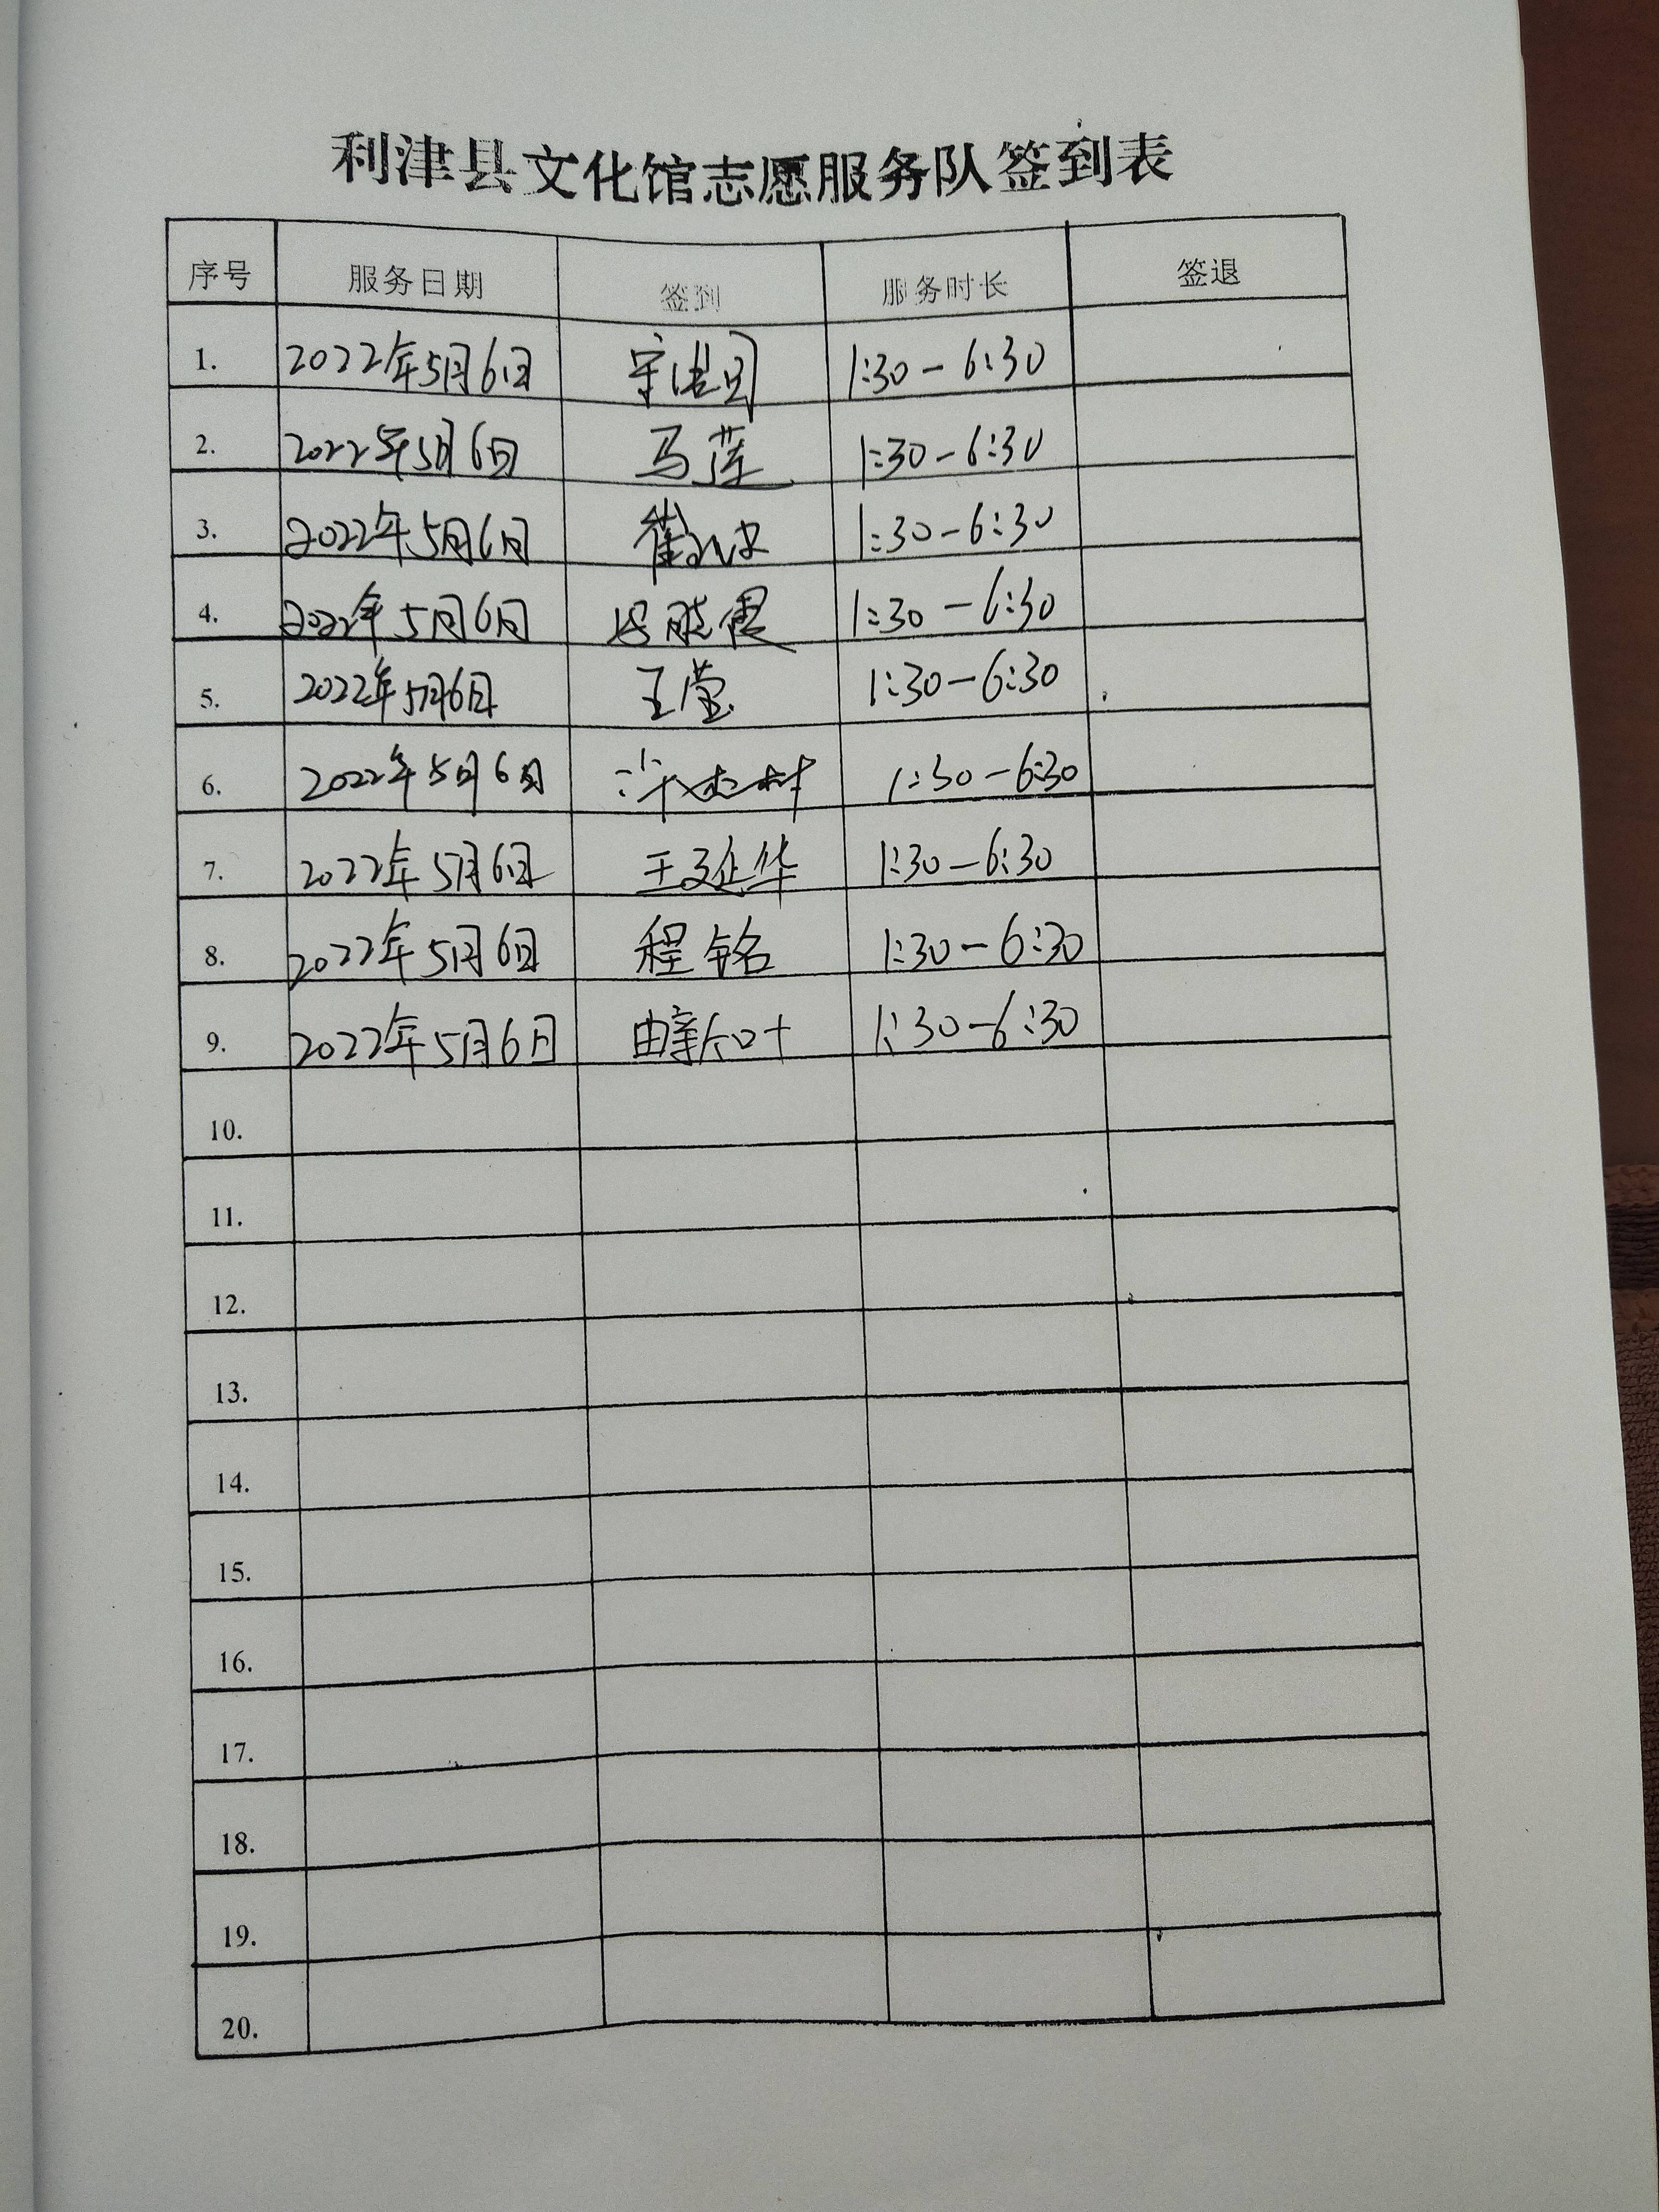 利津县文化馆志愿服务队签到表
序号 服务日期 签到 服务时长 签退
1. 2022年5月6日 1:30-6:30
2. 2022年5月6日 马莲 1:30-6:30
3. 2022年5月6日 崔 1:30-6:30
4. 2022年5月6日 晓霞 1:30-6:30
5. 2022年5月6日 王莹 1:30-6:30
6. 2022年5月6日 1:30-6:30
7. 2022年5月6日 王延华 1:30-6:30
8. 2022年5月6日 程铭 1:30-6:30
9. 2022年5月6日 1:30-6:30
10.
11.
12.
13.
14.
15.
16.
17.
18.
19.
20.